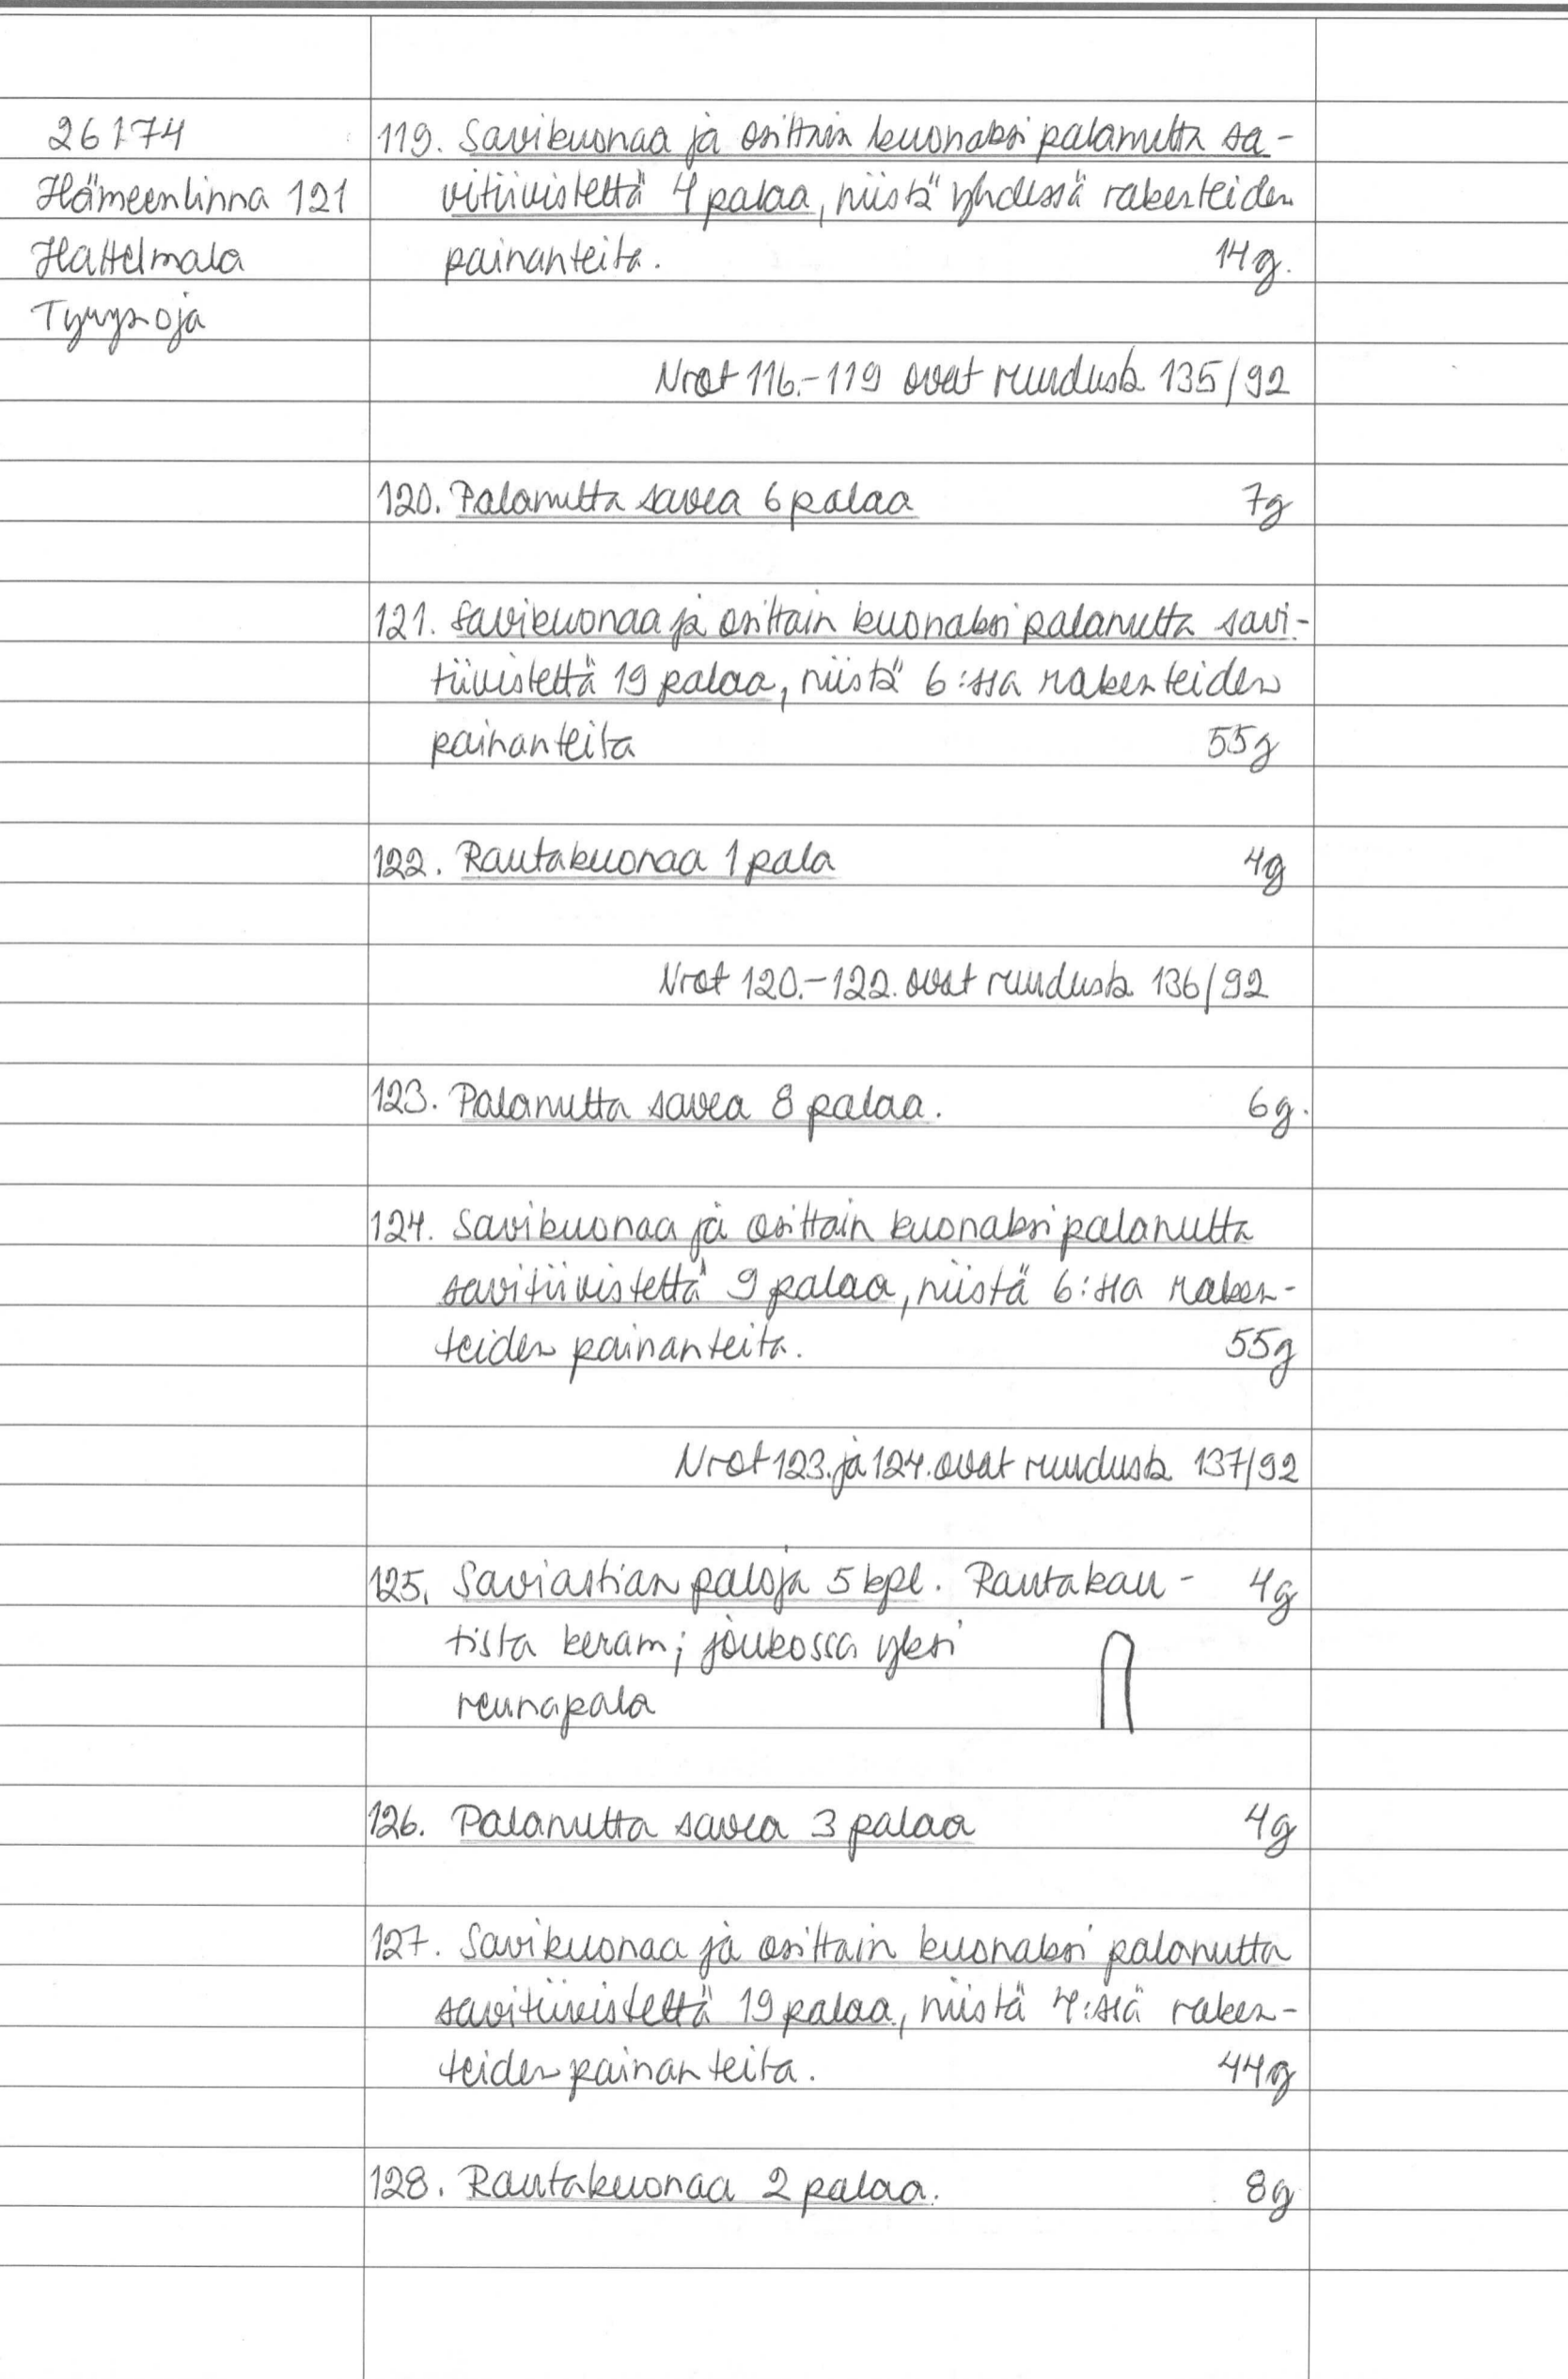 26174
Hämeenlinna 121
Hattelmala
Tyrysoja
119. Savikuonaa ja osittain kuonaksi palanutta sa-
vitiivistettä 4 palaa, niistä yhdessä rakenteiden
painanteita. 14g.
Nrot 116.-119 ovat ruudusta 135/92
120. Palanutta savea 6 palaa 7g
121. Savikuonaa ja osittain kuonaksi palanutta savi-
tiivistettä 19 palaa, niistä 6:ssa rakenteiden
painanteita 55g
122. Rautakuonaa 1 pala 4g
Nrot 120.-122. ovat ruudusta 136/92
123. Palanutta savea 8 palaa. 6g.
124. Savikuonaa ja osittain kuonaksi palanutta
savitiivistettä 9 palaa, niistä 6:ssa raken-
teiden painanteita. 55g
Nrot 123. ja 124. ovat ruudusta 137/92
125. Saviastian paloja 5 kpl. Rautakau- 4g
tista keram; joukossa yksi
reunapala
126. Palanutta savea 3 palaa 4g
127. Savikuonaa ja osittain kuonaksi palanutta
savitiivistettä 19 palaa, niistä 4:ssä raken-
teiden painanteita. 44g
128. Rautakuonaa 2 palaa. 8g